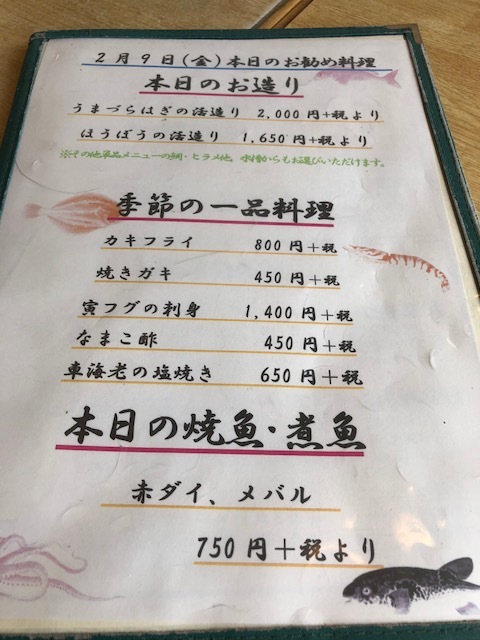 2月9日(金)本日のお勧め料理
本日のお造り
うまづらはぎの活造り 2,000円+税より
ほうぼうの活造り 1,650円+税より
※その他単品メニューの鯛・ヒラメ他、水槽からもお選びいただけます。
季節の一品料理
カキフライ 800円+税
焼きガキ 450円+税
寅フグの刺身 1,400円+税
なまこ酢 450円+税
車海老の塩焼き 650円+税
本日の焼魚・煮魚
赤ダイ、メバル
750円+税より